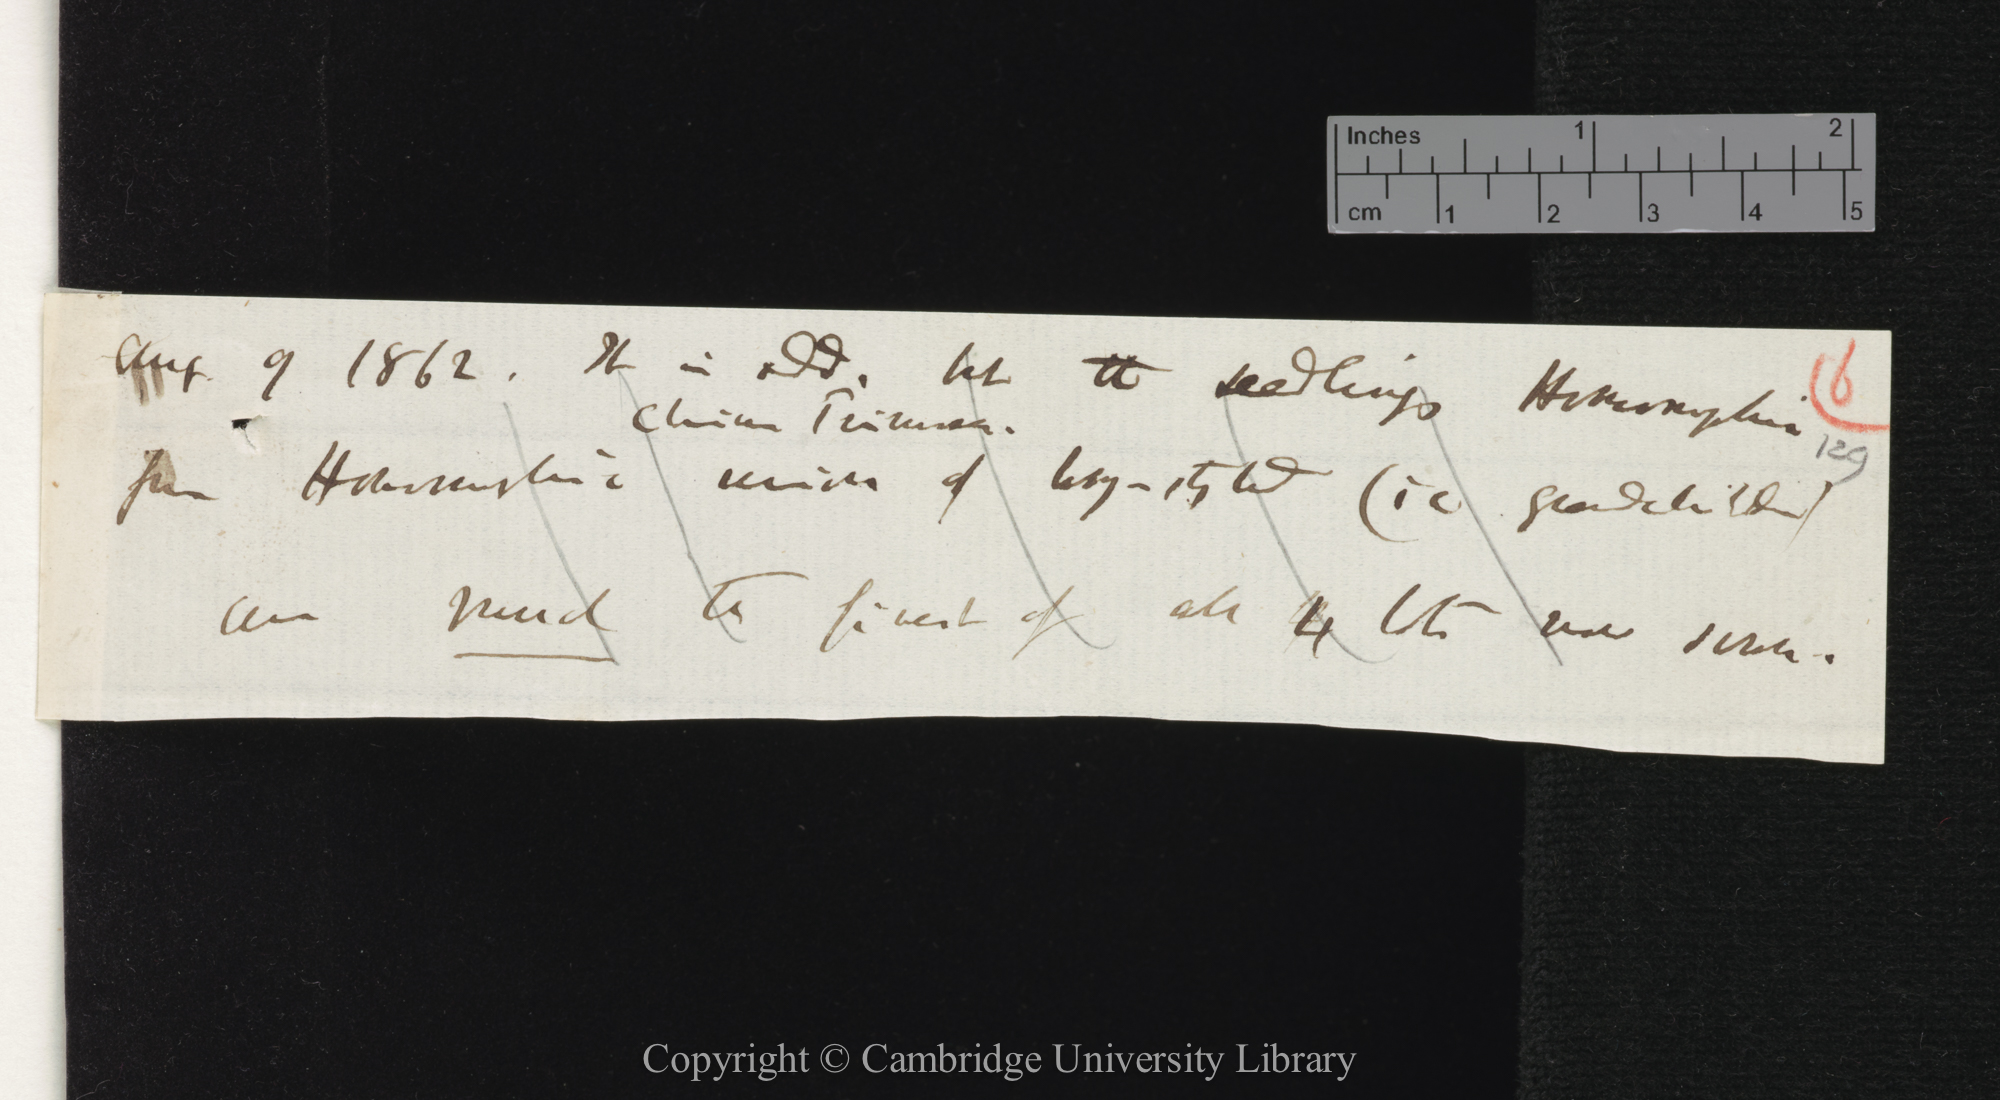 Inches 1 2
cm 1 2 3 4 5
Aug 9 1862. It is odd, but the seedlings Homomorphic
(6
Chinese Primrose.
129
from Homomorphic union of long-styled (ie grandchildren)
are much the finest of all 4 lots now sown.
Copyright © Cambridge University Library